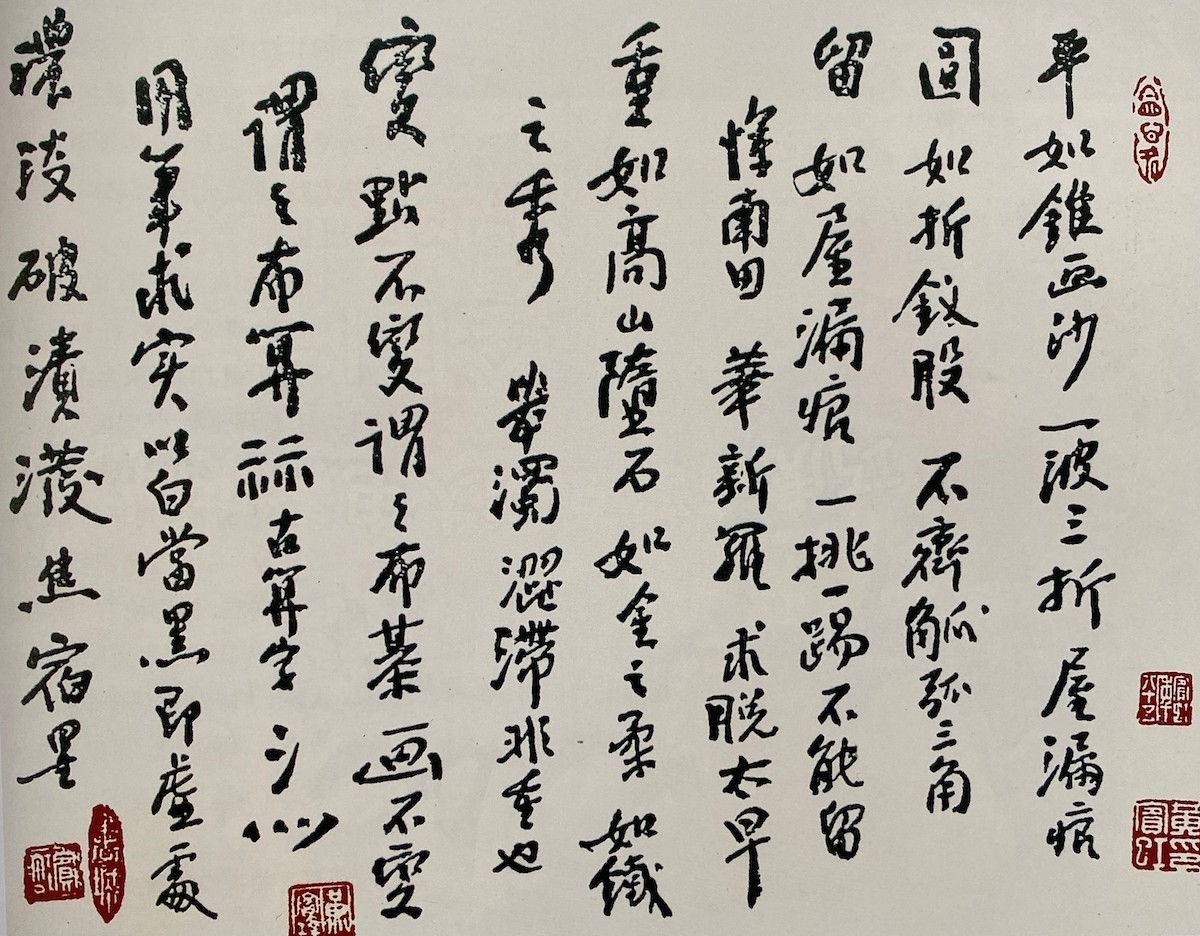 平如錐画沙一波三折屋漏痕
圓如折釵股不齊觚弧三角
留如屋漏痕一挑一踢不能留
惲南田華新羅求脫太早
重如高山墜石如金之柔如鐵
之秀 最濁澀滯非重也
變點不變謂之布棊画不變
謂之布算祘古算字
用筆求实以白當黑即虛處
濃破漬焦宿墨
黃賓虹